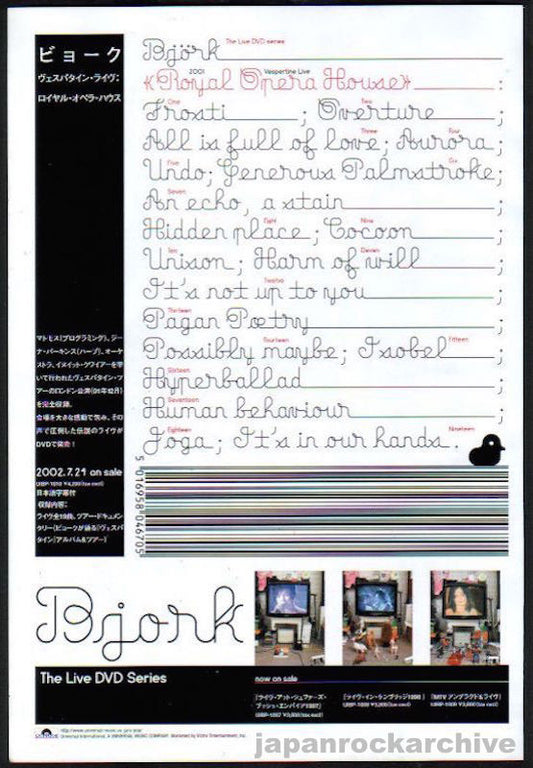 ビョーク
ヴェスパタイン・ライヴ;
ロイヤル・オペラ・ハウス
Björk The Live DVD series
2001 Vespertine Live
«Royal Opera House» ;
One Two
Frosti ; Overture ;
Three Four
All is full of love; Aurora ;
Five Six
Undo; Generous Palmstroke;
Seven
An echo, a stain ;
Eight Nine
Hidden place ; Cocoon ;
Ten Eleven
Unison ; Harm of will ;
Twelve
It's not up to you ;
Thirteen
Pagan Poetry ;
Fourteen Fifteen
Possibly maybe; Isobel ;
Sixteen
Hyperballad ;
Seventeen
Human behaviour ;
Eighteen Nineteen
Joga ; It's in our hands .
マトモス(プログラミング)、ジー
ナ・パーキンス(ハープ)、オーケ
ストラ、イヌイット・クワイアーを率
いて行われたヴェスパタイン・ツ
アーのロンドン公演(01年12月)
を完全収録。
会場を大きな感動で包み、その
声で圧倒した伝説のライヴが
DVDで発売!
2002.7.21 on sale
日本語字幕付
収録内容:
ライヴ全19曲、ツアー・ドキュメン
タリー(ビョークが語る『ヴェスパ
タイン』アルバム&ツアー)
5 016958 046705
Björk
The Live DVD Series
now on sale
「ライヴ・アット・シェファーズ・
ブッシュ・エンパイア1997」
「ライヴ・イン・ケンブリッジ1998」
「MTV アンプラグド&ライヴ」
japanrockarchive